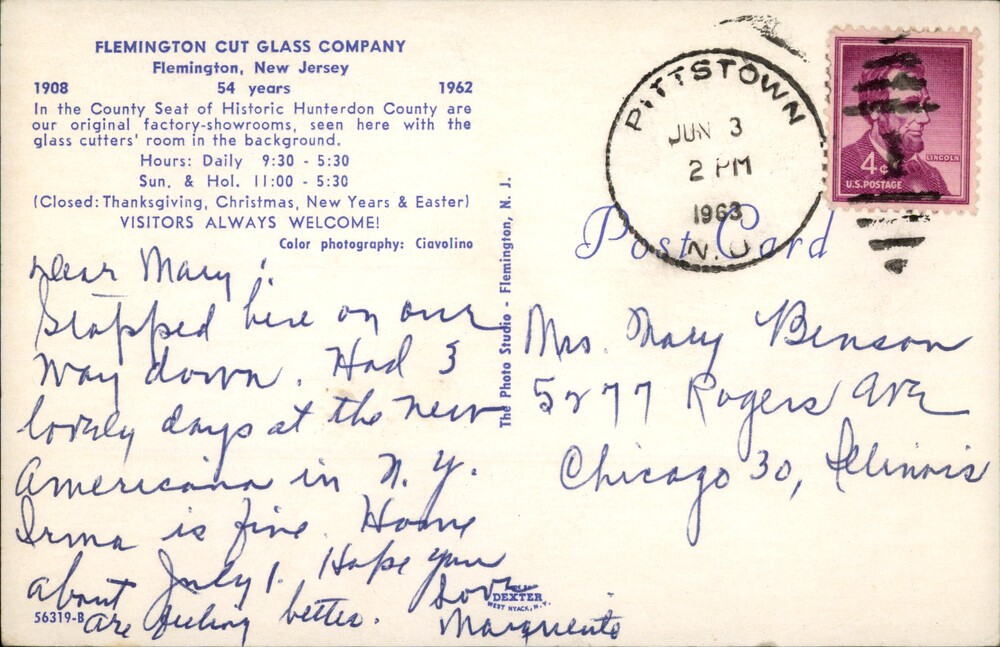 FLEMINGTON CUT GLASS COMPANY
Flemington, New Jersey
1908 54 years 1962
In the County Seat of Historic Hunterdon County are
our original factory-showrooms, seen here with the
glass cutters' room in the background.
Hours: Daily 9:30 - 5:30
Sun. & Hol. 11:00 - 5:30
(Closed: Thanksgiving, Christmas, New Years & Easter)
VISITORS ALWAYS WELCOME!
Color photography: Ciavolino
Dear Mary:
Stopped here on our
way down. Had 3
lovely days at the new
Americana in N.Y.
Irma is fine. Home
about July 1. Hope you
are feeling better.
Love
Marguerite
56319-B
DEXTER
WEST NYACK, N.Y.
The Photo Studio - Flemington, N. J.
Post Card
PITTSTOWN
JUN 3
2 PM
1963
N.J.
4¢
LINCOLN
U.S. POSTAGE
Mrs. Mary Benson
5277 Rogers Ave
Chicago 30, Illinois